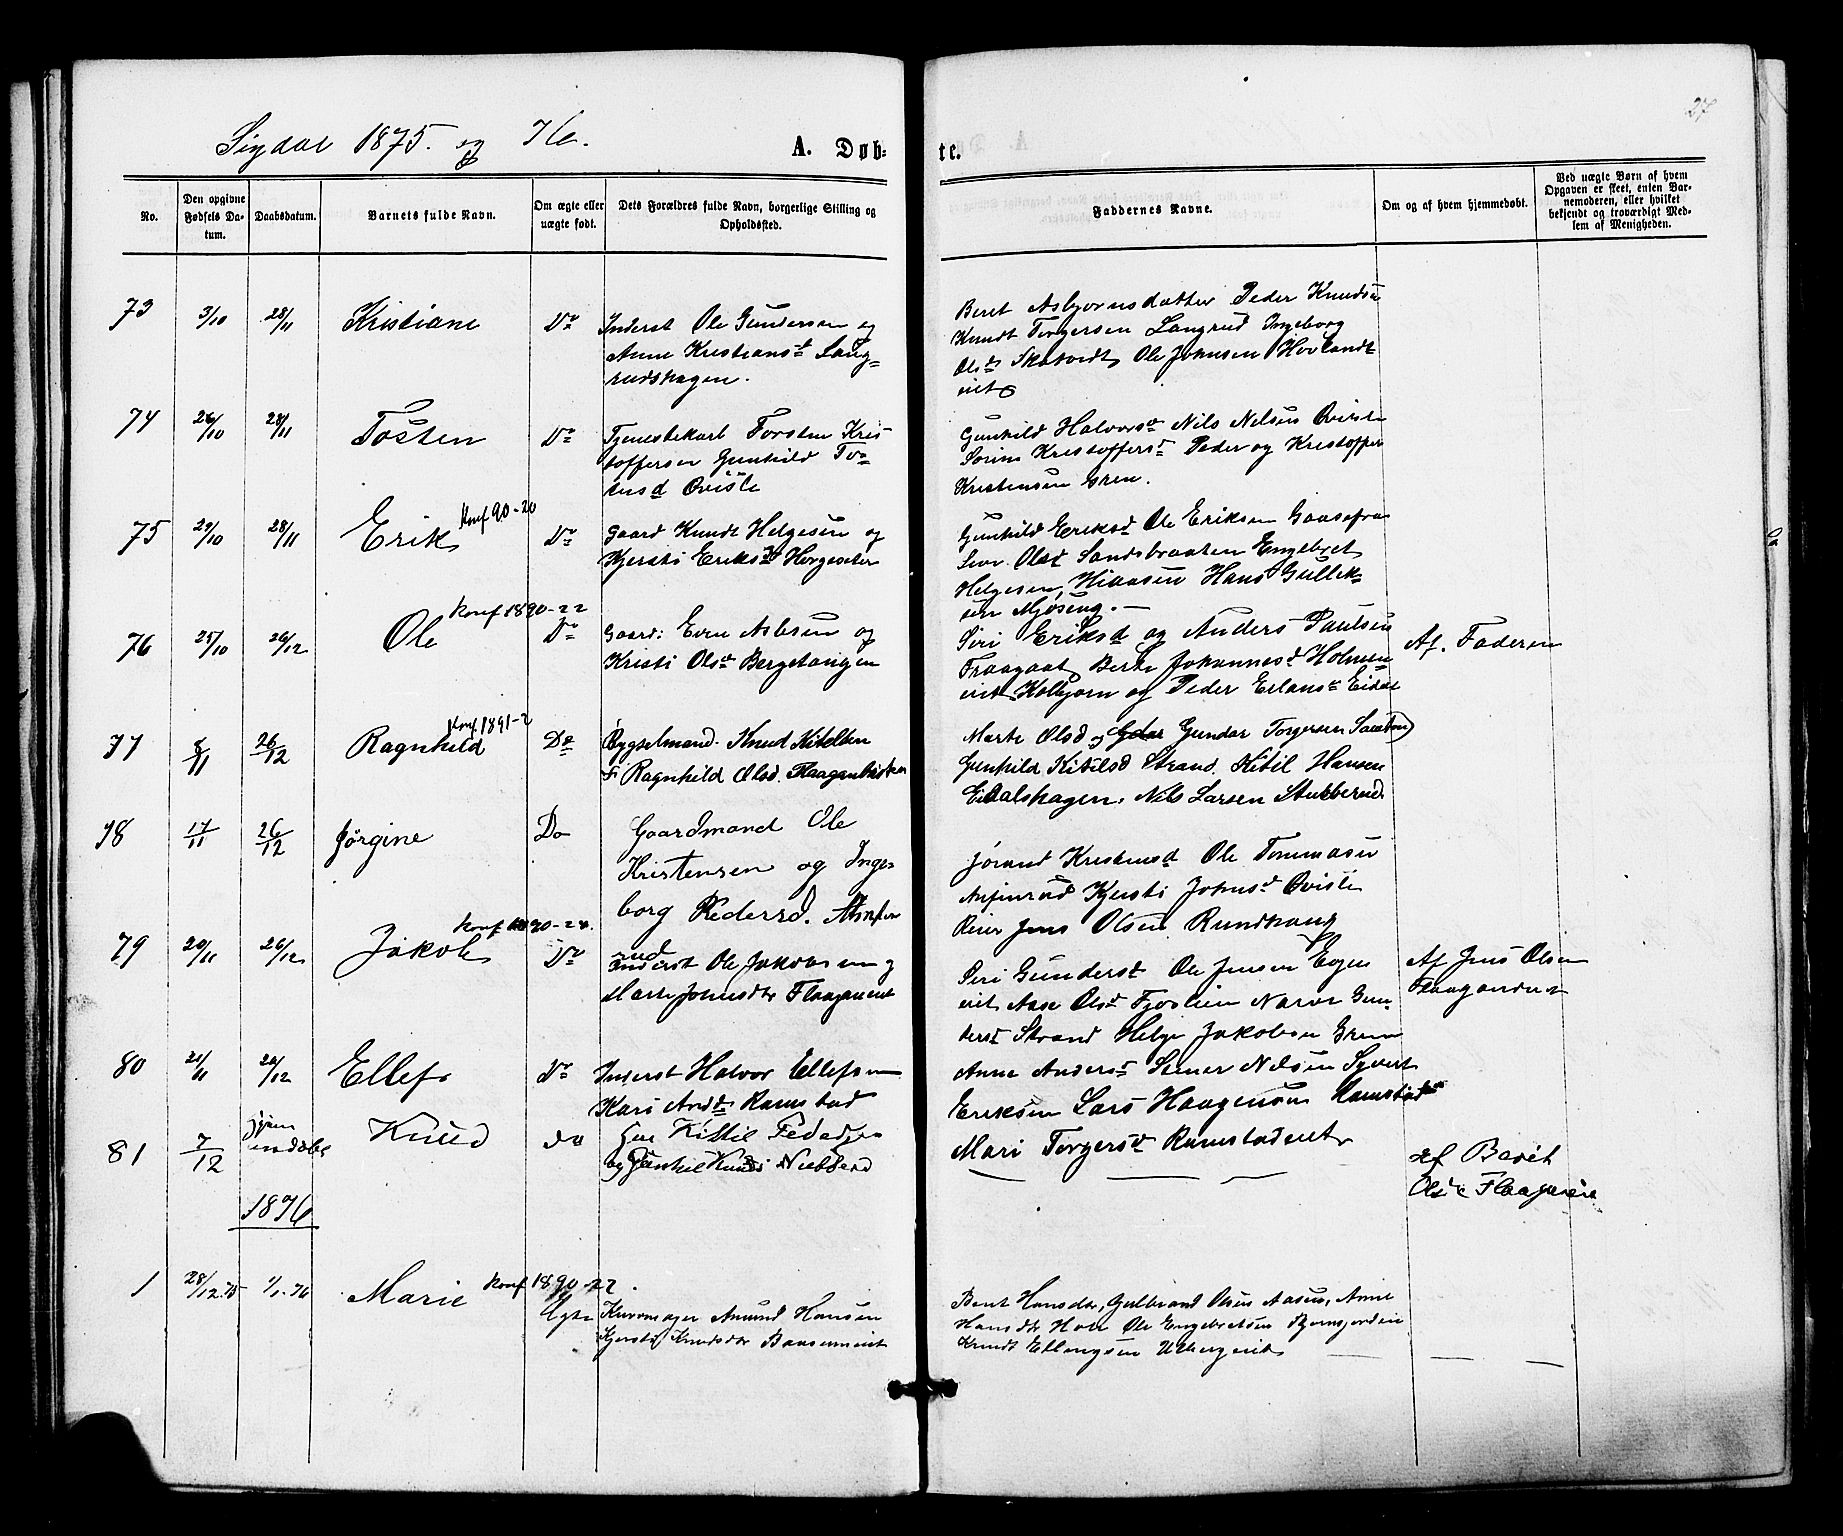 27
Sigdal 1875. og 76.
A. Døb-
te.
No.
Den opgivne Fødsels Da-tum.
Daabsdatum.
Barnets fulde Navn.
Om ægte eller uægte født.
Dets Forældres fulde Navn, borgerlige Stilling og Opholdssted.
Faddernes Navne.
Om og af hvem hjemmedøbt.
Ved uægte Børn af hvem Opgaven er skeet, enten Bar-nemoderen, eller hvilket bekjendt og troværdigt Med-lem af Menigheden.
73 3/10 28/11 Kristiane Do
Inderst Ole Gundersen og
Anne Kristiansd Lang-
rudshagen.
Beret Asbjørnsdatter Peder Knudsen
Knudt Torgersen Langrud Ingeborg
Olsd Skatvedt Ole Johnsen Hovlandt
eiet
74 26/10 28/11 Tosten Do
Tjenestekarl Torsten Kris
toffersen Gunhild To
sensd Qvisle
Gunhild Halvorsd Nils Nilsen Qvisle
Kristoffersd Peder og Kristoffer
Kristensen Gren.
75 29/10 28/11 Erik Konf 90-20 Do
Gaard Knudt Helgesen og
Kjersti Eriksd Horgeseter
Gunhild Eriksd Ole Eriksen
Olsd Sandsbraaten Engebret
Helgesen, Hiaasen Hans Gullik-
sen Mjøseng.
76 25/10 26/12 Ole Konf 1890-22 Do
Gaard: Even Aslesen og
Kristi Olsd Bergstangen
Siri Eriksd og Anders Paulsen
Fraagaat Berte Johannesd Holmen
eiet Kolbjørn og Peder Erlans Eidal
Af. Faderen
77 5/11 26/12 Ragnhild Konf. 1891-2 Do
Bygselmand. Knud Kitelsen
Ragnhild Olsd. Flaaganbakken
Marte Olsd og Gunder Torgersen
Gunhild Kitilsd Strand. Kitil Hansen
Eidalshagen. Nils Larsen Stubberud
78 17/11 26/12 Jørgine Do
Gaardmand Ole
Kristensen og Inge-
borg Pedersd.
rud
Jørand Kristensd Ole Tommasen
Kjersti Johnsd Qvisle
Jens Olsen Rundhaug
79 20/11 26/12 Jakob Konf 1890-24. Do
Inderst Ole Jakobsen og
Marte Johnsdtr Flaaganeiet
Siri Gundersd Ole Jensen
eiet Aase Olsd Fjøslien Narve Gun-
dersd Strand Helge Jakobsen Gren
Af Jens Olsen
80 21/11 26/12 Ellef Do
Inderst Halvor Ellefsen
Kari Andd Ramstad
Anne Andersd Steiner Nilsen Syvert
Eriksen Lars Haagensen Ramstad
81 7/12 hjem
mdøbt Knud do
Kittil Pedersen
og Gunhil Knuds Nubberud
Mari Torgersd Ramstadeiet
af Berit
Olsd Flaaganeie
1876
1 28/12.75 1/1.76 Marie Konf 1890-22. Ægte
Kurvmager Amund Hansen
Kjersti Knudsdtr Baaseneiet
Berit Hansdtr, Gulbrand Olsen Aasen, Anne
Hansdtr Hole Ole Engebretsen
Knudt Ellingsen